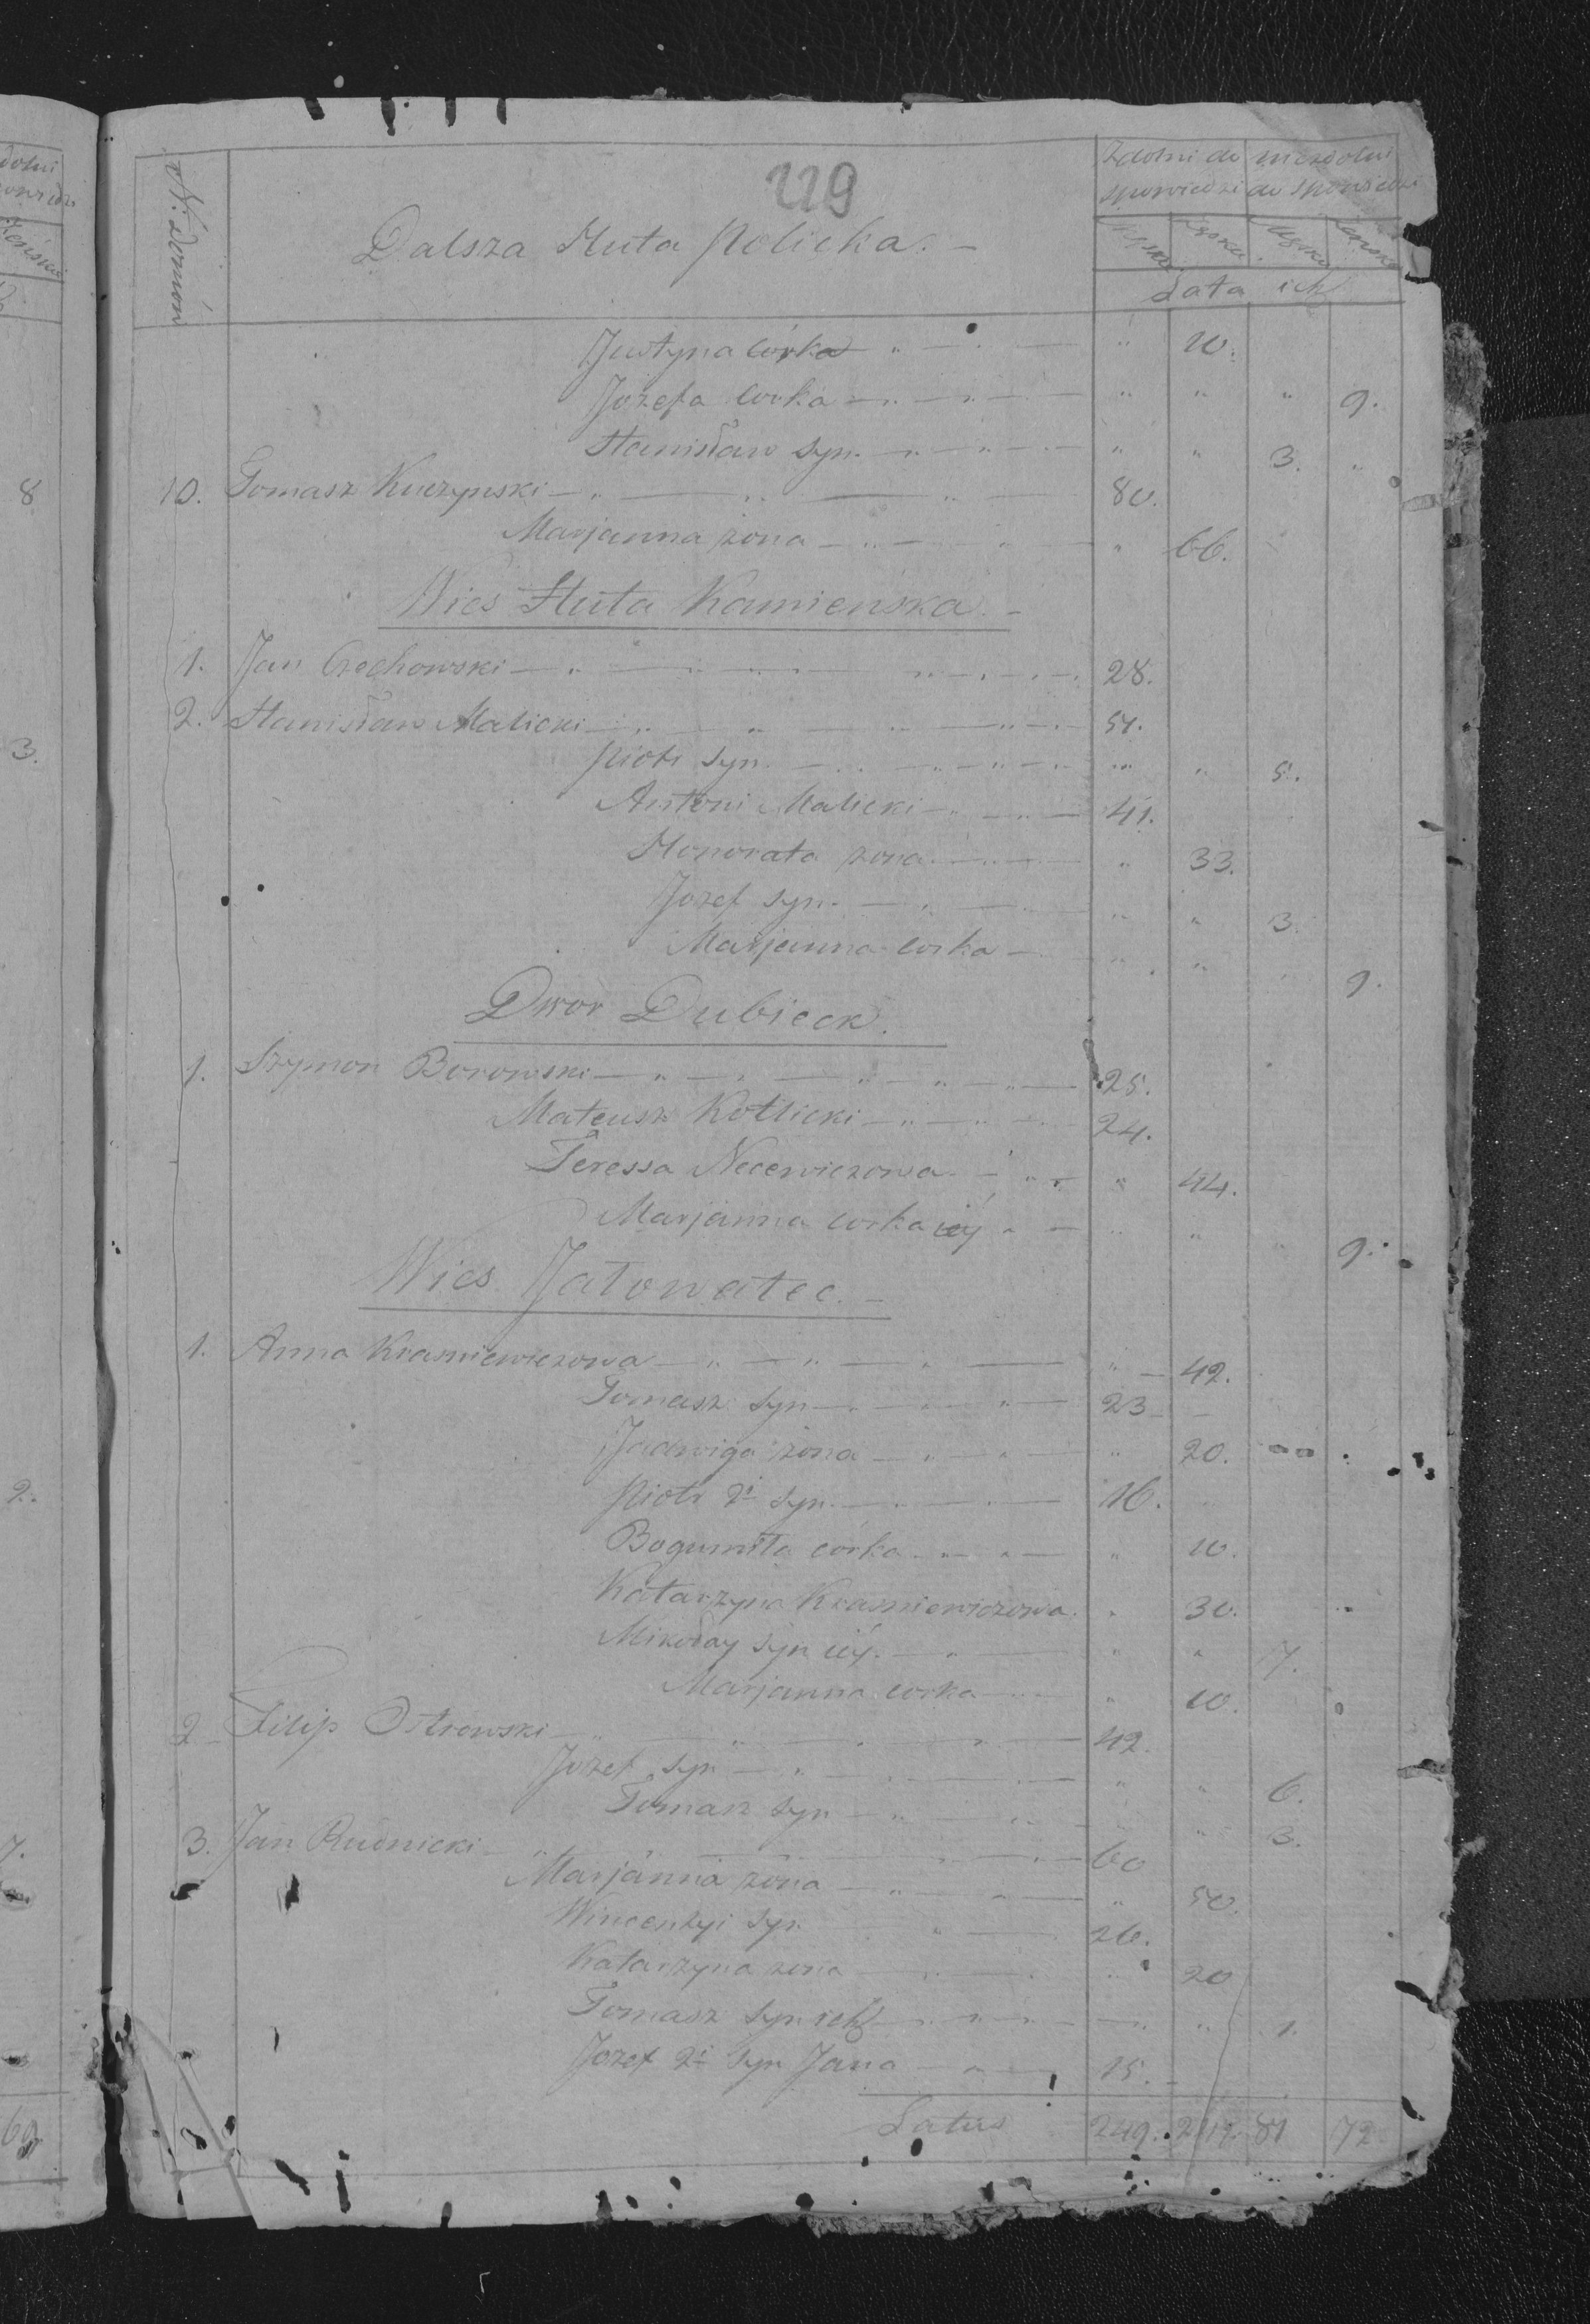 119
N: Domów
Zdolni do spowiedzi
niezdolni do spowiedzi
Męska Żęska Męska Żenska
Lata ich
Dalsza Huta Policka. -
Justyna córka " 10.
Jozefa corka " " " 9.
Stanisław syn " " 3. "
10. Tomasz Kuczynski 80.
Marjanna żona " 66.
Wies Huta Kamienska. -
1. Jan Czechowski 28.
2. Stanisław Malicki 51.
Piotr syn " " 5.
Antoni Malicki 41.
Honorata zona " 33.
Jozef syn " " 3.
Marjanna corka " " " 9.
Dwor Dubieck.
1. Szymon Borowski 25.
Mateusz Kotlicki 24.
Teressa Necewiczowa " 44.
Marjanna corka iey " " " 9.
Wies Jatowatec. -
1. Anna Krasniewiczowa " 42.
Tomasz syn 23
Jadwiga żona " 20.
Piotr 2i syn 16.
Bogumiła córka " 10.
Katarzyna Krasniewiczowa " 30.
Mikołay syn iéy. " " 7.
Marjanna corka " 10.
2 Filip Ostrowski 42.
Jozef syn " " 6.
Tomasz syn " " 3.
3. Jan Rudnicki 60
Marjanna zona " 50.
Wincentyi syn 26.
Katarzyna zona " 20
Tomasz syn ich " " 1.
Jozef 2i syn Jana 15.
Latus 249. 212. 81 72
8
3.
2.
7.
69